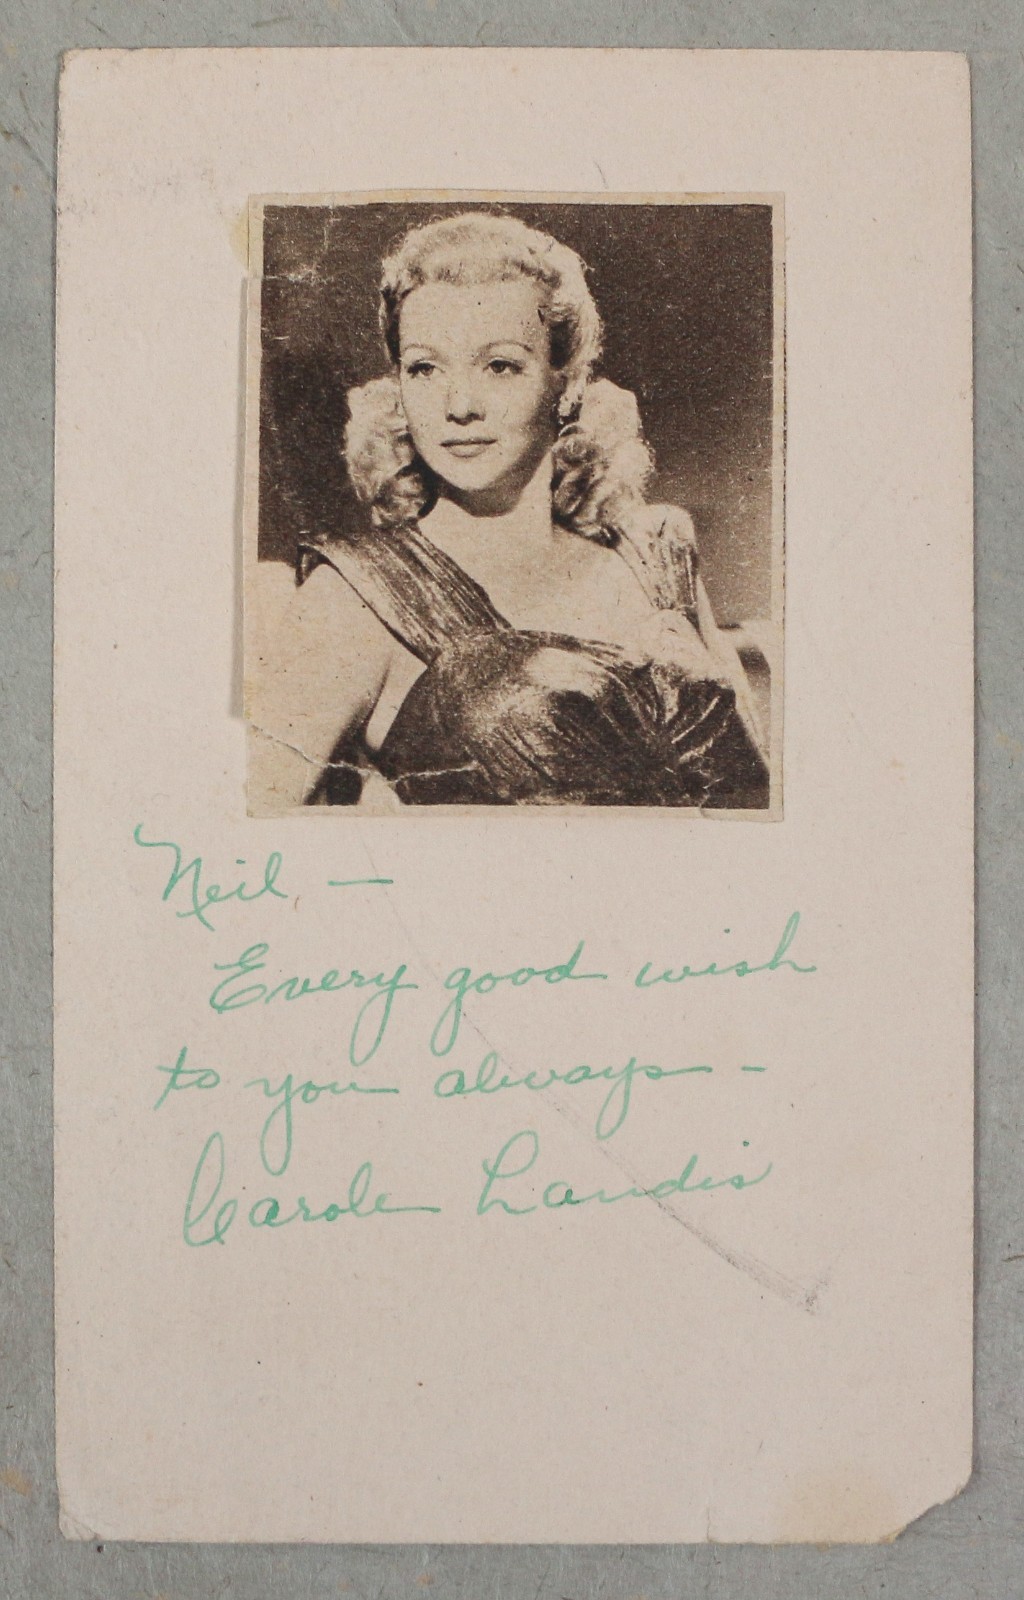 Neil —
Every good wish
to you always —
Carole Landis